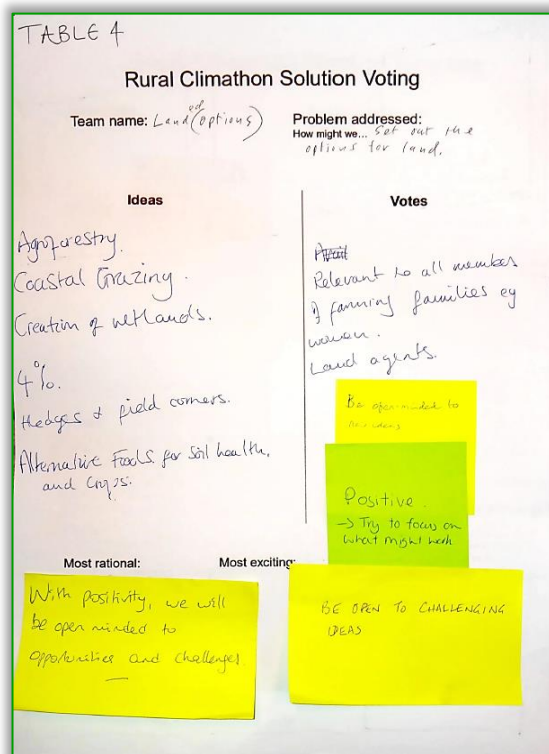 TABLE 4
Rural Climathon Solution Voting
Team name: Land(ed options)
Problem addressed:
How might we... Set out the
options for land.
Ideas
Agroforestry.
Coastal Grazing.
Creation of wetlands.
4%.
Hedges & field corners.
Alternative Foods for Soil health,
and Crops.
Votes
Relevant to all member
of farming families eg
woman.
Land agents.
Be open-minded to
new ideas
Positive.
→ Try to focus on
what might work
Most rational:
Most exciting:
With positivity, we will
be open minded to
opportunities and challenges
BE OPEN TO CHALLENGING
IDEAS